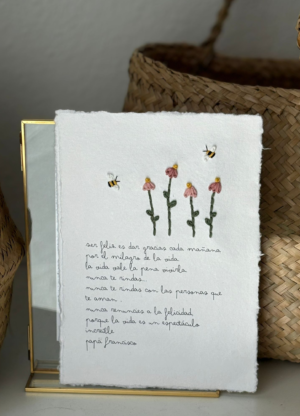 ser feliz es dar gracias cada mañana
por el milagro de la vida
la vida vale la pena vivirla
nunca te rindas...
nunca te rindas con las personas que
te aman...
nunca renuncies a la felicidad
porque la vida es un espectáculo
increíble
papa francisco